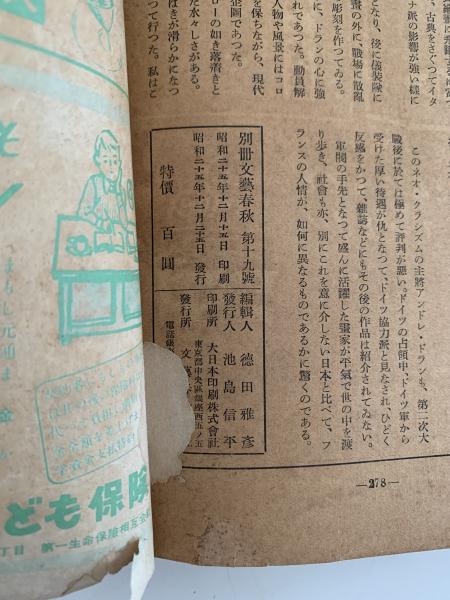 となり、後に儀裝隊に
畫の外に、戰場に散亂
彫刻を作つてゐる。
に、ドランの心に強
れであつた。動員解
人物や風景にはコロ
を保ちながら、現代
企圖であつた。
ローの如き落着きと
た水々しさがある。
はきが滑らかになつ
て行つた。私はこ
このネオ・クラシズムの主將アンドレ・ドランも、第二次大
戰後に於ては極めて評判が惡い。ドイツの占領中、ドイツ軍から
受けた厚い待遇が仇となつて、ドイツ協力派と見なされ、ひどく
反感をかつて、雜誌などにもその後の作品は紹介されてゐない。
軍閥の手先となつて盛んに活躍した畫家が平氣で世の中を渡
り歩き、社會も亦、別にこれを意に介しない日本と比べて、フ
ランスの人情が、如何に異なるものであるかに驚くのである。
別冊文藝春秋 第十九號
昭和二十五年十二月十五日 印刷
昭和二十五年十二月二十五日 發行
特價 百圓
編輯人 德田雅彥
發行人 池島信平
印刷所 大日本印刷株式會社
東京都中央區銀座西五ノ五
發行所 文
電話
—278—
ども保険
丁目 第一生命保險相互會